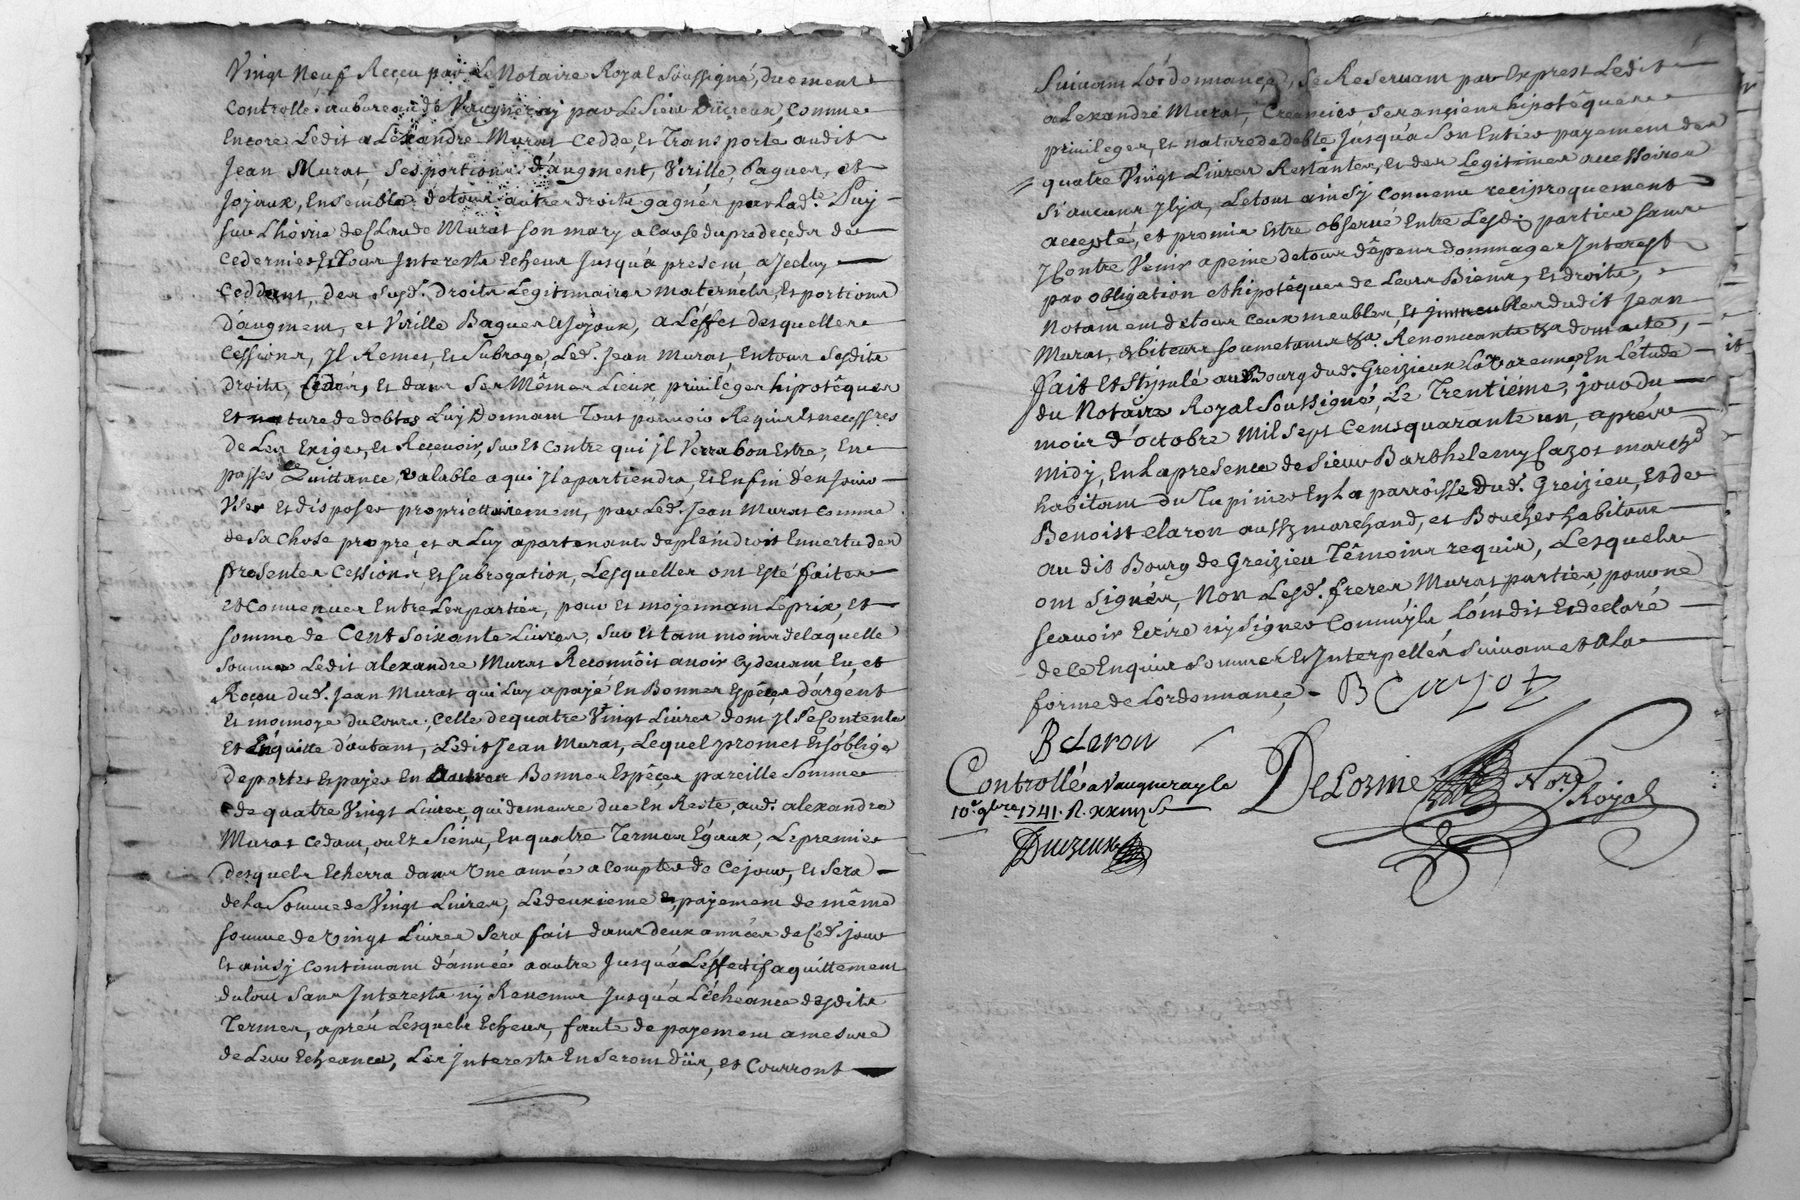 Vingt Neuf Reçeu par Le Notaire Royal Soussigné, duement
Controllé au bureau de Vaugneray par Le Sieur Duzeux, Comme
Encore Ledit alexandre Murat Cedde, Et Transporte audit
Jean Murat, Ses portions d'augment, Virille, bagues, et
Joyaux, Ensemble detous autres droits gagnés par Lad.te Puy
sur L'hoirie de Claude Murat son mary a Cause du predeçeds de
Ce dernier, Et Tous Interests Echeus Jusqu'a present, a Jceluy
Ceddant, des Susd.s droits Legitimaires maternels, Et portions
D'augment, et Virille Bagues Et Joyaux, a L'effet desquelles
Cessions, Jl Remet, Et Subroge, Led. Jean Murat, En tous Sesdits
droits, Cedés, Et dans Ses Mêmes Lieux privileges hipotêques
Et nature de debtes Luy Donnant Tout pouvoir Requis Et necess.res
de Les Exiger, Et Reçevoir, Sur Et Contre qui Jl Verra bon Estre, En
passer Quittance, valable a qui Jl apartiendra, Et Enfin d'en Jouir
Vser Et disposer proprietairement, par Led. Jean Murat Comme
de Sa Chose propre, et a Luy apartenant, de plein droit En vertu des
presentes Cessions, Et Subrogation, Lesquelles ont Esté faites
Et Convenues Entre Les parties, pour Et moyennant Le prix, Et
Somme de Cent Soixante Livres, Sur Et tant moins de laquelle
Somme Ledit alexandre Murat Reconnoit avoir Cy devant Eu, et
Reçeu dud. Jean Murat qui Luy a payé En Bonnes Espêces d'argent
Et monnoye du Cours, Celle de quatre Vingt Livres dont Jl Se Contente
Et En quitte d'autant, Ledit Jean Murat, Lequel promet Et S'oblige
De porter Et payer En Bonnes Espêces pareille Somme
de quatre Vingt Livres, qui demeure due En Reste, aud. alexandre
Murat Cedant, ou Ez Siens, En quatre Termes Egaux, Le premier
desquels Echerra dans Vne année a Compter de Ce jour, Et Sera
de La Somme de Vingt Livres, Le deuxieme payement de même
Somme de Vingt Livres Sera fait dans deux années de Ced. jour
Et ainsy Continuant d'année a autre Jusqu'a L'effectif aquittement
du tout Sans Interests ny Revenus Jusqu'a L'échéance desdits
Termes, aprés Lesquels Echeus, faute de payement a mesure
de Leur Echeance, Les Interests En Seront dûs, et Courront
Suivant L'ordonnance, Se Reservant par Exprest Ledit
alexandre Murat, Creancier Ses ançiens hipotêques
privileges, Et nature de debte, Jusqu'a Son Entier payement des
quatre Vingt Livres Restantes, et des Legitimes accessoires
Si aucuns Jl y a, Le tout ainsy Convenu reciproquement
accepté, et promis Estre observé Entre Lesd. parties sans
y Contre Venir a peine de tous dépens dommages Interests
par obligation Et hipotêques de Leurs Biens, Et droits,
Notament de tous Ceux meubles, Et jmmeubles dudit Jean
Murat, debiteur Soumetants &a. Renonceants &a dont acte,
Fait Et Stipulé au Bourg dud. Greizieux La Varenne, En L'étude
du Notaire Royal Soussigné, Le Trentieme, jour du
mois d'octobre Mil Sept Cents quarante un, aprés
Midy, En La presence de Sieur Barthelemy Cazot march.d
habitant du Tupinier En La parroisse dud. Greizieu, Et de
Benoist Claron aussy marchand, et Boucher habitant
au dit Bourg de Greizieu Têmoins requis, Lesquels
ont Signés, Non Lesd. freres Murat parties, pour ne
Scavoir Ecrire ny Signer Comm'jls L'ont dit Et declaré
de Ce Enquis Sommés Et Interpellés Suivant et a La
forme de L'ordonnance. B Cazot
B Claron
DeLorme No.re Royal
Controllé a Vaugneray Le
10.e 9bre 1741. R. xxiiij s
Duzeux